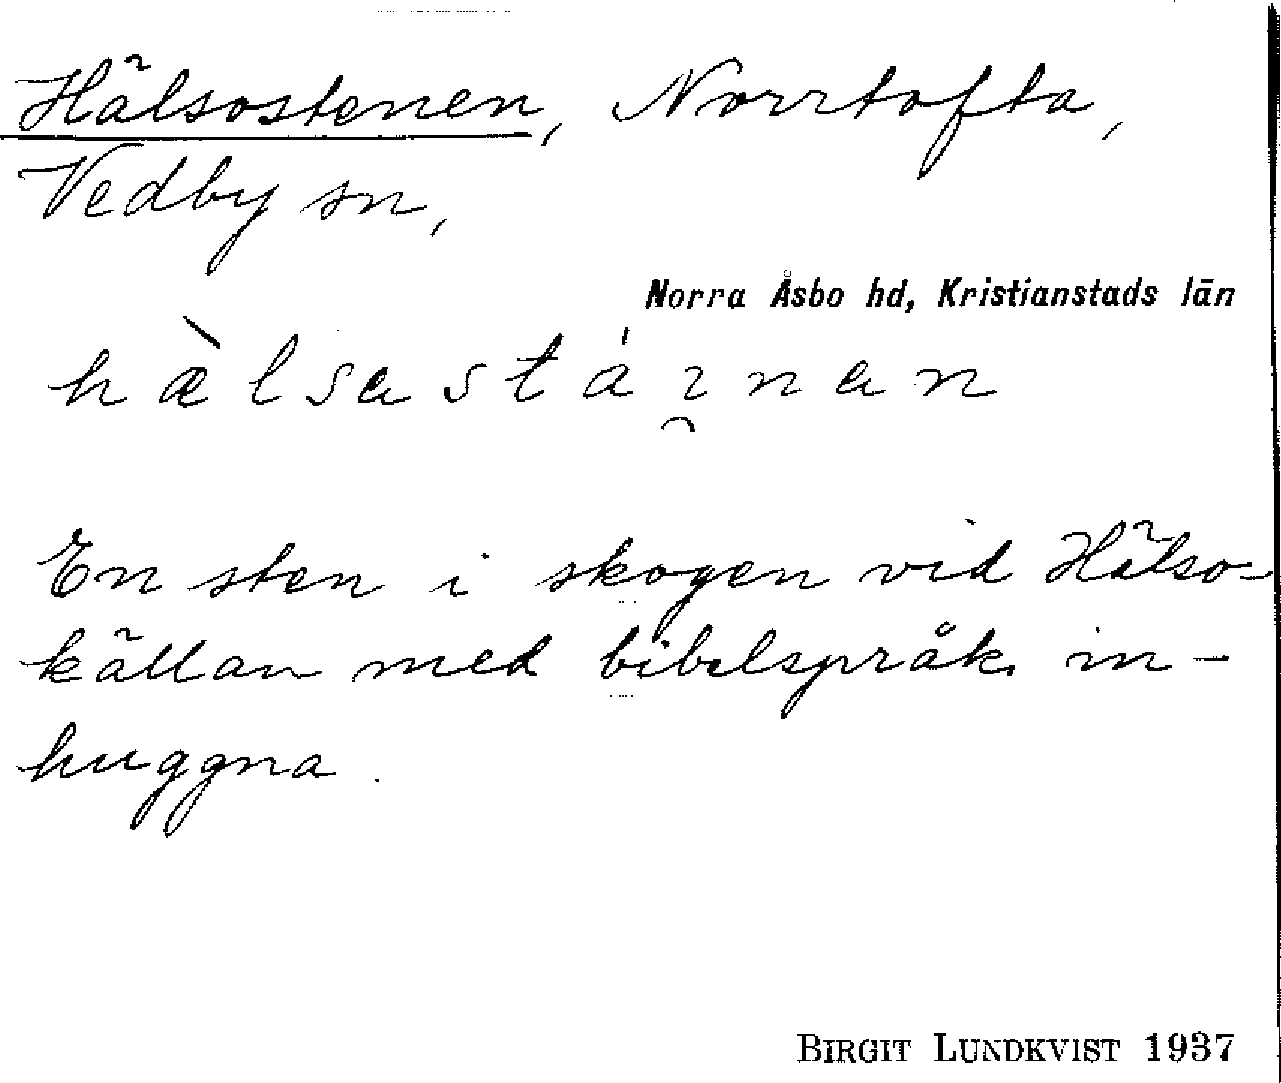 Hälsostenen, Norrtofta,
Vedby sn,
Norra Åsbo hd, Kristianstads län
hæ̀lsastáɪ̯nan
En sten i skogen vid Hälso-
källan med bibelspråk in-
huggna.
BIRGIT LUNDKVIST 1937